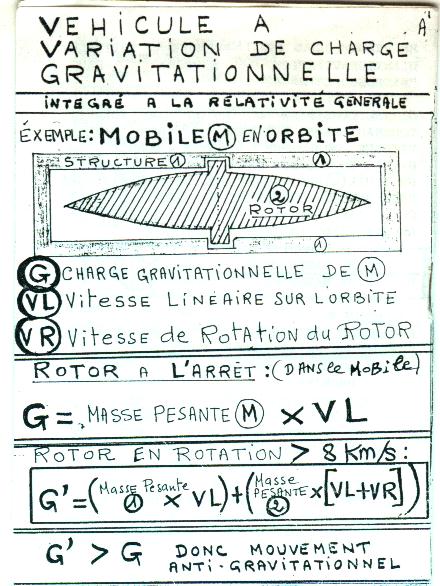 VEHICULE A
A'
VARIATION DE CHARGE
GRAVITATIONNELLE
INTÉGRÉ A LA RELATIVITÉ GÉNÉRALE
ÉXEMPLE: MOBILE (M) EN ORBITE
STRUCTURE (1) (1)
(2)
ROTOR
(1)
(G) CHARGE GRAVITATIONNELLE DE (M)
(VL) Vitesse LINÉAIRE SUR L'ORBITE
(VR) Vitesse de RotAtion du RotoR
ROTOR A L'ARRÊT : (DANS le MOBILE)
G = MASSE PESANTE (M) X VL
ROTOR EN ROTATION > 8 Km/s :
G' = (Masse Pesante (1) X VL) + (Masse PESANTE (2) X [VL+VR])
G' > G DONC MOUVEMENT
ANTI-GRAVITATIONNEL